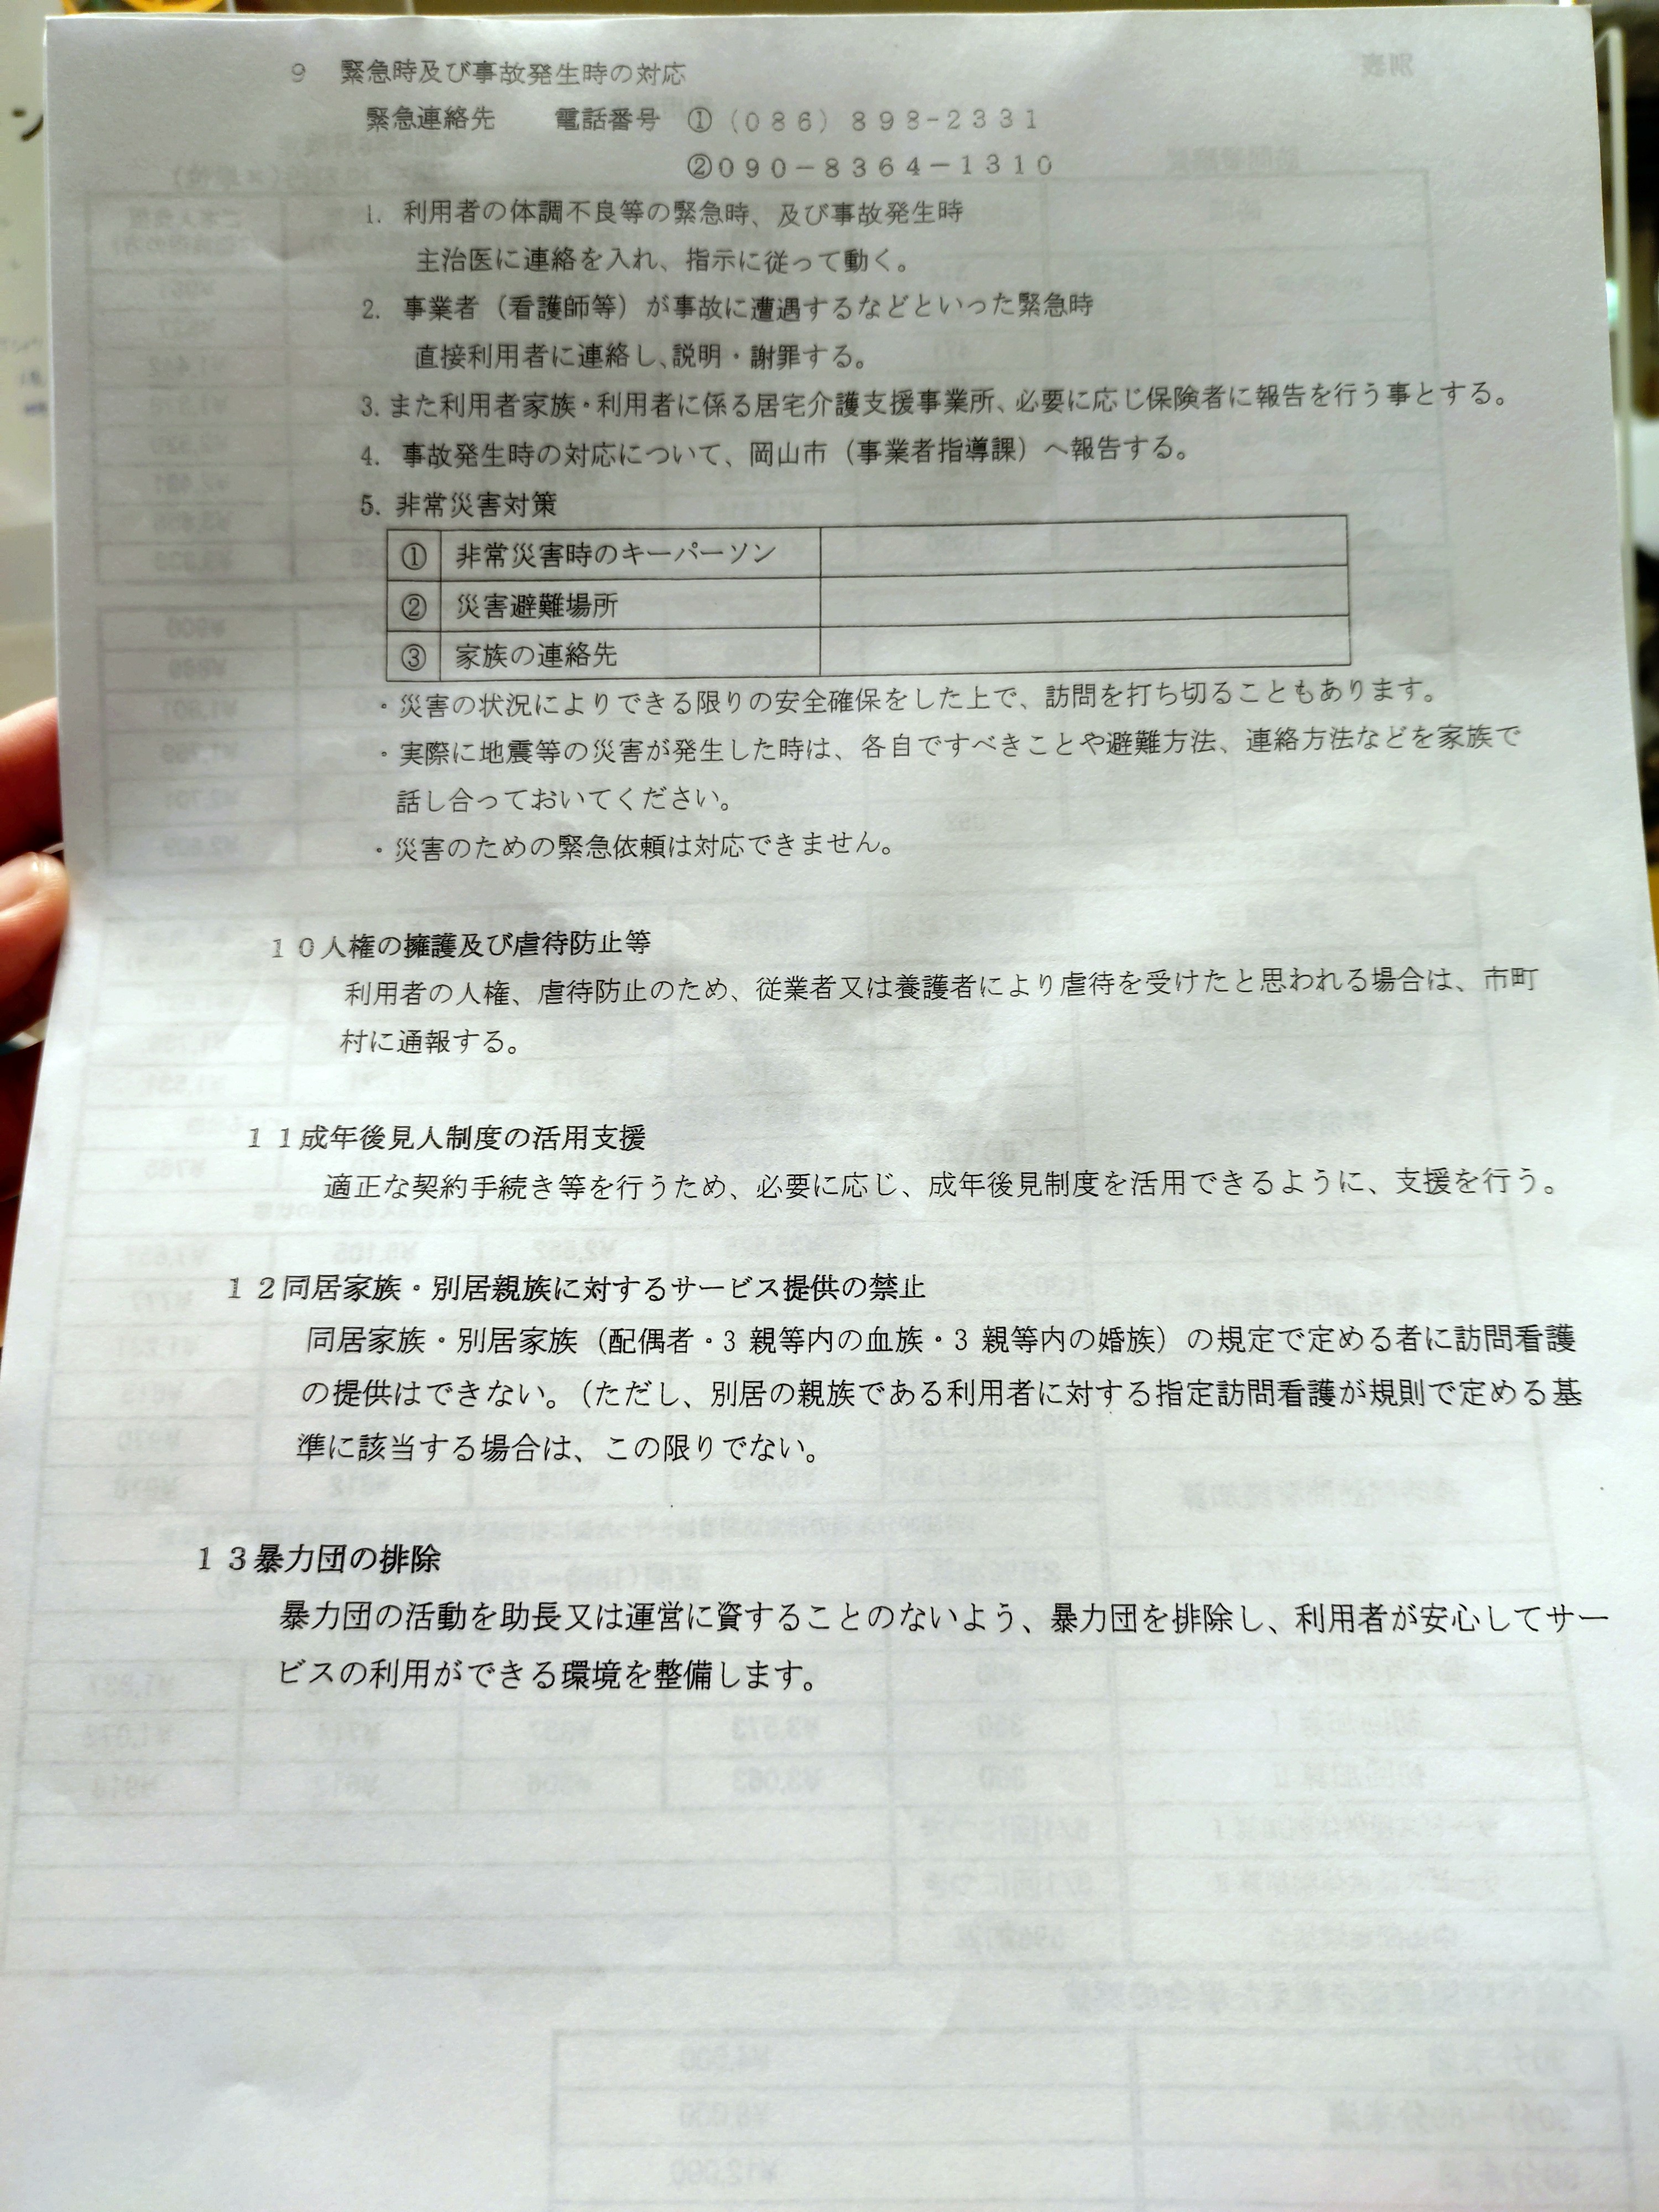 9 緊急時及び事故発生時の対応
緊急連絡先 電話番号 ①(086)898-2331
②090-8364-1310
1. 利用者の体調不良等の緊急時、及び事故発生時
主治医に連絡を入れ、指示に従って動く。
2. 事業者(看護師等)が事故に遭遇するなどといった緊急時
直接利用者に連絡し、説明・謝罪する。
3.また利用者家族・利用者に係る居宅介護支援事業所、必要に応じ保険者に報告を行う事とする。
4. 事故発生時の対応について、岡山市(事業者指導課)へ報告する。
5. 非常災害対策
① 非常災害時のキーパーソン
② 災害避難場所
③ 家族の連絡先
・災害の状況によりできる限りの安全確保をした上で、訪問を打ち切ることもあります。
・実際に地震等の災害が発生した時は、各自ですべきことや避難方法、連絡方法などを家族で
話し合っておいてください。
・災害のための緊急依頼は対応できません。
10人権の擁護及び虐待防止等
利用者の人権、虐待防止のため、従業者又は養護者により虐待を受けたと思われる場合は、市町
村に通報する。
11成年後見人制度の活用支援
適正な契約手続き等を行うため、必要に応じ、成年後見制度を活用できるように、支援を行う。
12同居家族・別居親族に対するサービス提供の禁止
同居家族・別居家族(配偶者・3 親等内の血族・3 親等内の婚族)の規定で定める者に訪問看護
の提供はできない。(ただし、別居の親族である利用者に対する指定訪問看護が規則で定める基
準に該当する場合は、この限りでない。
13暴力団の排除
暴力団の活動を助長又は運営に資することのないよう、暴力団を排除し、利用者が安心してサー
ビスの利用ができる環境を整備します。